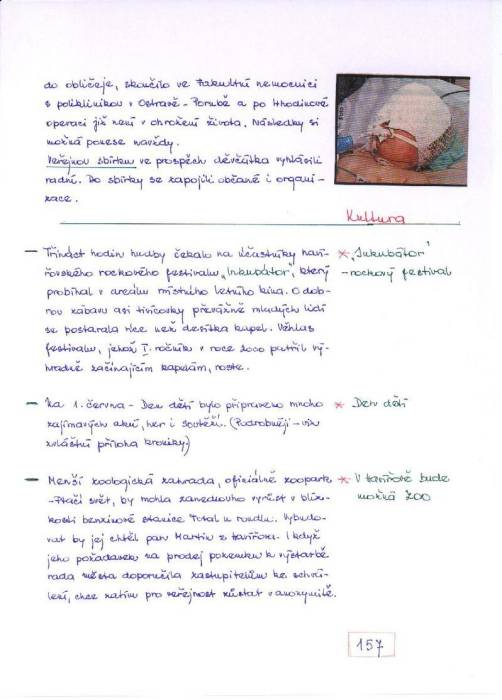 do obličeje, skončilo ve Fakultní nemocnici
s poliklinikou v Ostravě - Porubě a po 4hodinové
operaci již není v ohrožení života. Následky si
možná ponese navždy.
Veřejnou sbírku ve prospěch děvčátka vyhlásili
radní. Do sbírky se zapojili občané i organi-
zace.
Kultura
- Třináct hodin hudby čekalo na účastníky haví-
řovského rockového festivalu „Inkubátor", který
probíhal v areálu místního letního kina. O dob-
rou zábavu asi tisícovky převážně mladých lidí
se postarala více než desítka kapel. Věhlas
festivalu, jehož I. ročník v roce 2000 patřil vý-
hradně začínajícím kapelám, roste.
* „Inkubátor"
- rockový festival
- Na 1. června - Den dětí bylo připraveno mnoho
zajímavých akcí, her i soutěží. (Podrobněji - viz
zvláštní příloha kroniky)
* Den dětí
- Menší zoologická zahrada, oficiálně zoopark
- Ptačí svět, by mohla zanedlouho vyrůst v blíz-
kosti benzinové stanice Total u kruhu. Vybudo-
vat by jej chtěl pan Martin z Havířova. I když
jeho požadavek na prodej pozemku k výstavbě
rada města doporučila zastupitelům ke schvá-
lení, chce zatím pro veřejnost zůstat v anonymitě.
* V Havířově bude
možná ZOO
157